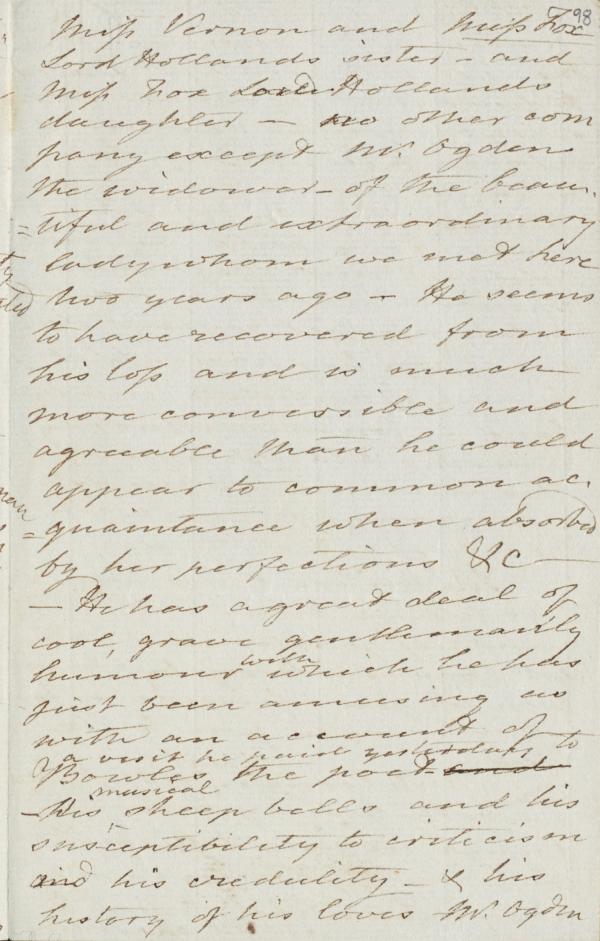 98
Miss Vernon and Miss Fox
Lord Hollands sister – and
Miss Fox Lord Hollands
daughter – no other com
pany except Mr. Ogden
the widower – of the beau-
=tiful and extraordinary
lady whom we met here
two years ago – He seems
to have recovered from
his loss and is much
more conversible and
agreeable than he could
appear to common ac-
=quaintance when absorbed
by her perfections &c
– He has a great deal of
cool, grave gentlemanly
humour with which he has
just been amusing us
with an account of
a visit he paid yesterday to
Bowles the poet – and
– His musical sheep bells and his
susceptibility to criticism
and his credulity – & his
history of his loves Mr. Ogden